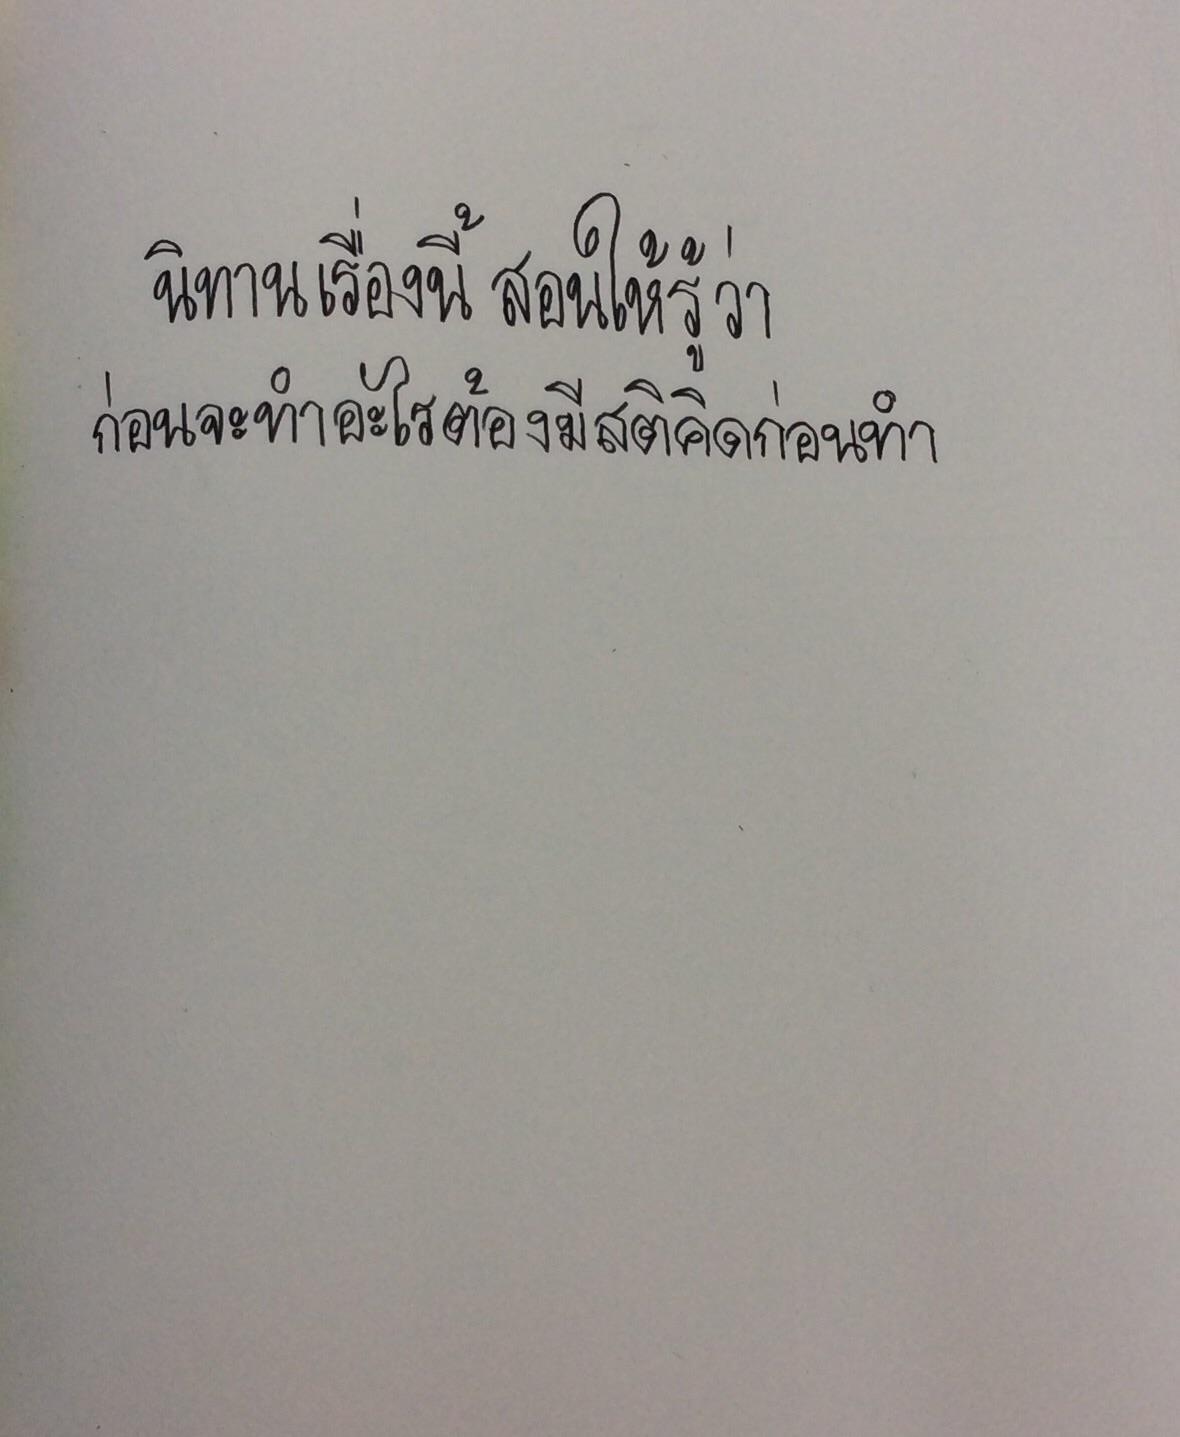 นิทานเรื่องนี้ สอนให้รู้ว่า
ก่อนจะทำอะไรต้องมีสติคิดก่อนทำ